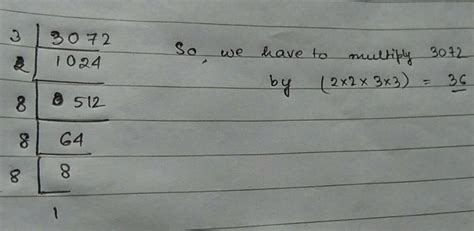 3 | 3072
2 | 1024
8 | 512
8 | 64
8 | 8
1
So, we have to multiply 3072
by (2×2×3×3) = 36